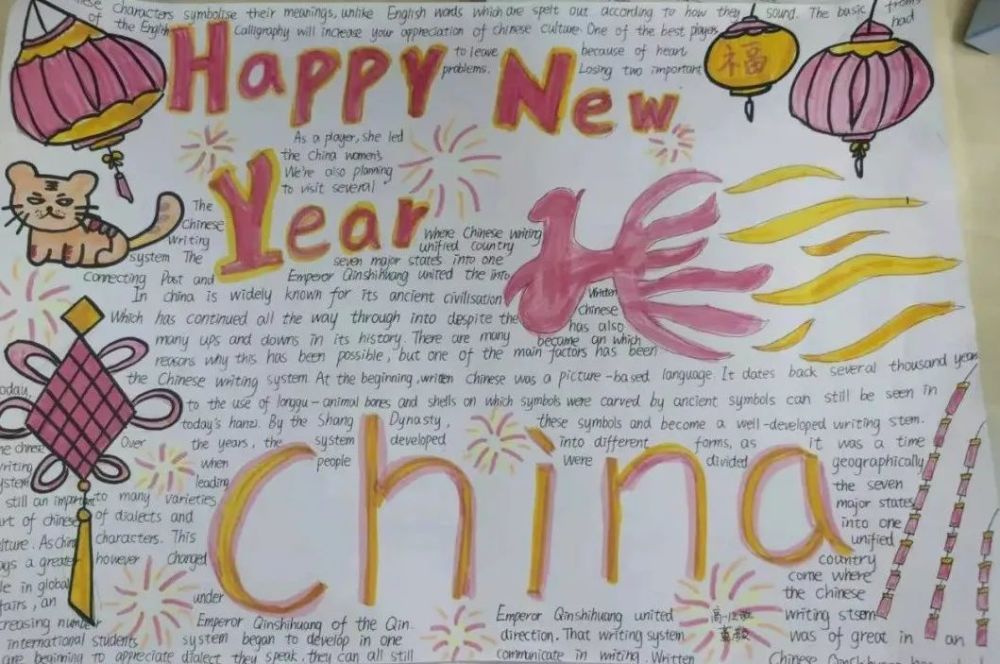 characters symbolise their meanings, unlike English words which are spelt out according to how they sound. The basic
of the English Calligraphy will increase your appreciation of chinese culture. One of the best players had
Happy New
to leave because of heart
problems. Losing two important
福
As a player, she led
the China women's
We're also planning
to visit several
Year
The
Chinese
writing
system The
where Chinese writing
unified country
seven major states into one
Connecting Past and Emperor Qinshihuang united the into
In china is widely known for its ancient civilisation
Written
Chinese
has also
became an which
Which has continued all the way through into despite the
many ups and downs in its history. There are many
reasons why this has been possible, but one of the main factors has been
the Chinese writing system. At the beginning, written Chinese was a picture-based language. It dates back several thousand years
to the use of longgu-animal bones and shells on which symbols were carved by ancient symbols can still be seen in
today's hanzi. By the Shang Dynasty, these symbols and become a well-developed writing stem.
Over the years, the system developed into different forms, as it was a time
when people were divided geographically
China
leading
to many varieties
of dialects and
characters. This
however changed
under
still an important
the seven
major states
into one
unified
country
come where
the Chinese
writing stsem
was of great in an
Emperor Qinshihuang of the Qin.
system began to develop in one
dialect they speak, they can all still
Emperor Qinshihuang united
direction. That writing system
communicate in writing. Written
international students
are beginning to appreciate